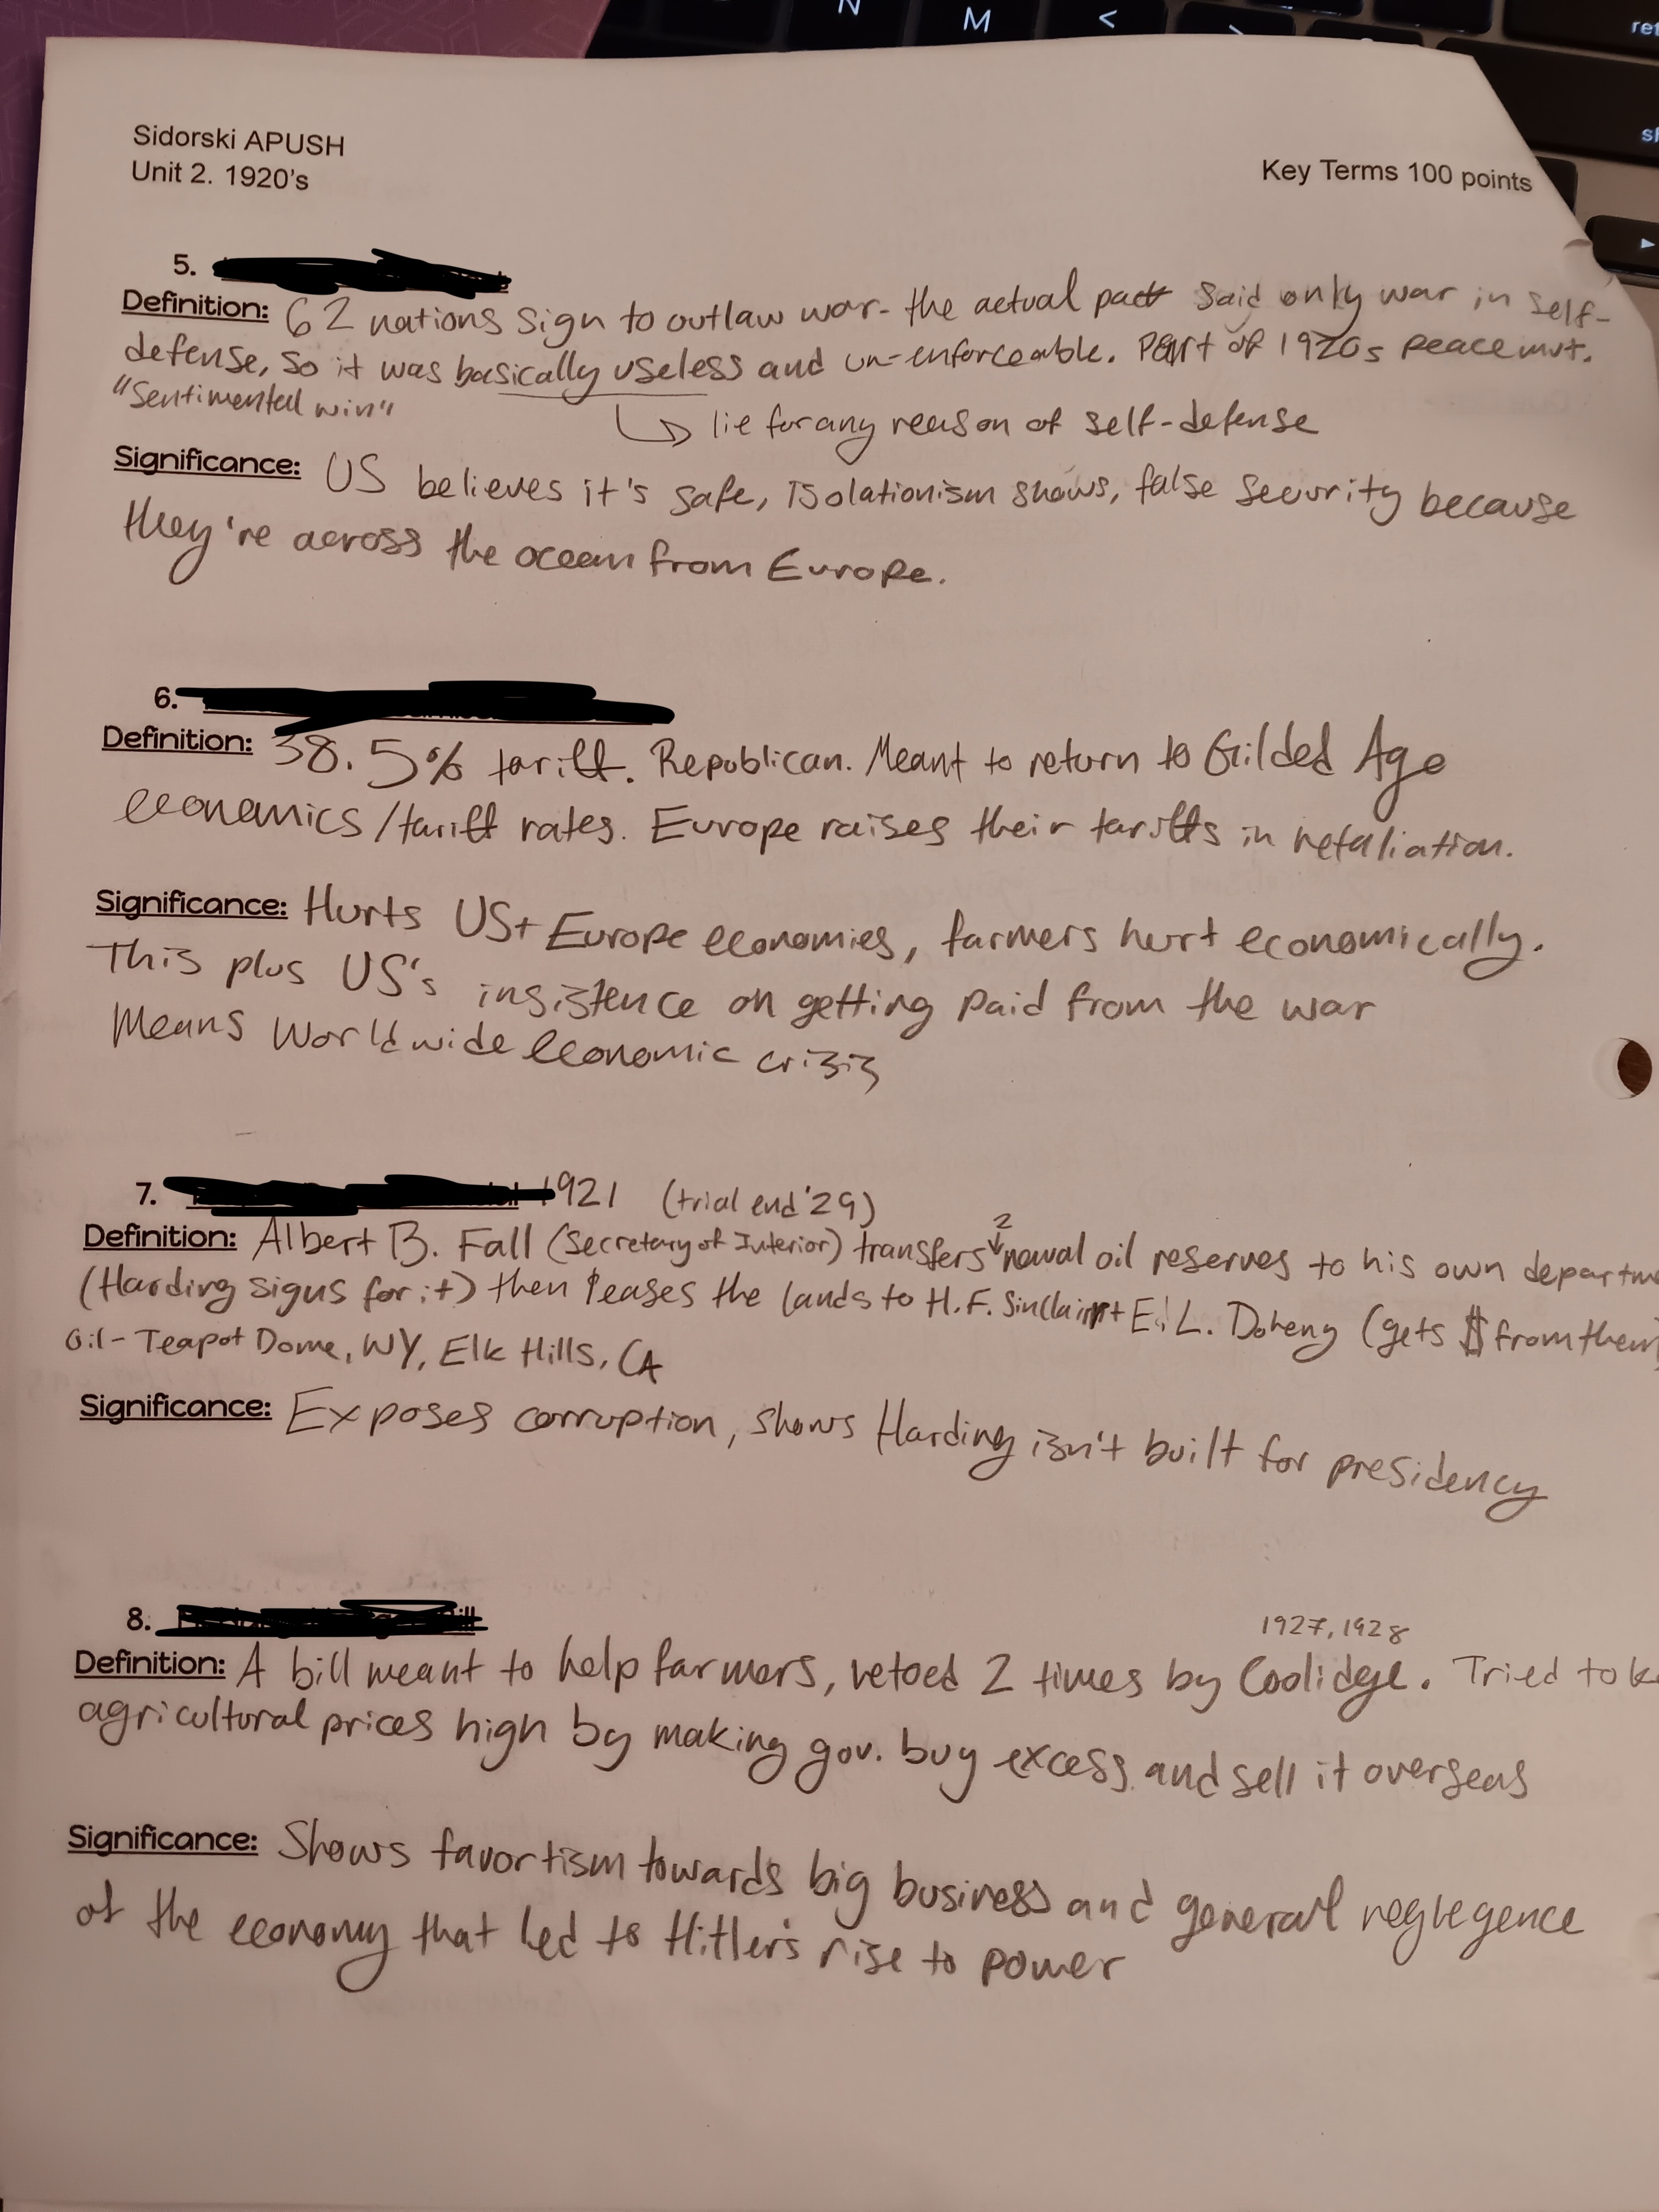 N M < >
Sidorski APUSH
Unit 2. 1920's
Key Terms 100 points
5.
Definition: 62 nations sign to outlaw war- the actual pact said only war in self-
defense, so it was basically useless and un-enforceable. Part of 1920s peace mvt.
"Sentimental win"
lie for any reason of self-defense
Significance: US believes it's safe, isolationism shows, false security because
they're across the ocean from Europe.
6.
Definition: 38.5% tariff. Republican. Meant to return to Gilded Age
economics/tariff rates. Europe raises their tariffs in retaliation.
Significance: Hurts US+ Europe economies, farmers hurt economically.
This plus US's insistence on getting paid from the war
Means Worldwide economic crisis
7. 1921 (trial end '29)
2
Definition: Albert B. Fall (Secretary of Interior) transfers naval oil reserves to his own departme
(Harding signs for it) then leases the lands to H.F. Sinclair + E.L. Doheny (gets $ from them)
Oil- Teapot Dome, WY, Elk Hills, CA
Significance: Exposes corruption, shows Harding isn't built for presidency
8.
1927, 1928
Definition: A bill meant to help farmers, vetoed 2 times by Coolidge. Tried to k
agricultural prices high by making gov. buy excess and sell it overseas
Significance: Shows favortism towards big business and general neglegence
of the economy that led to Hitler's rise to power